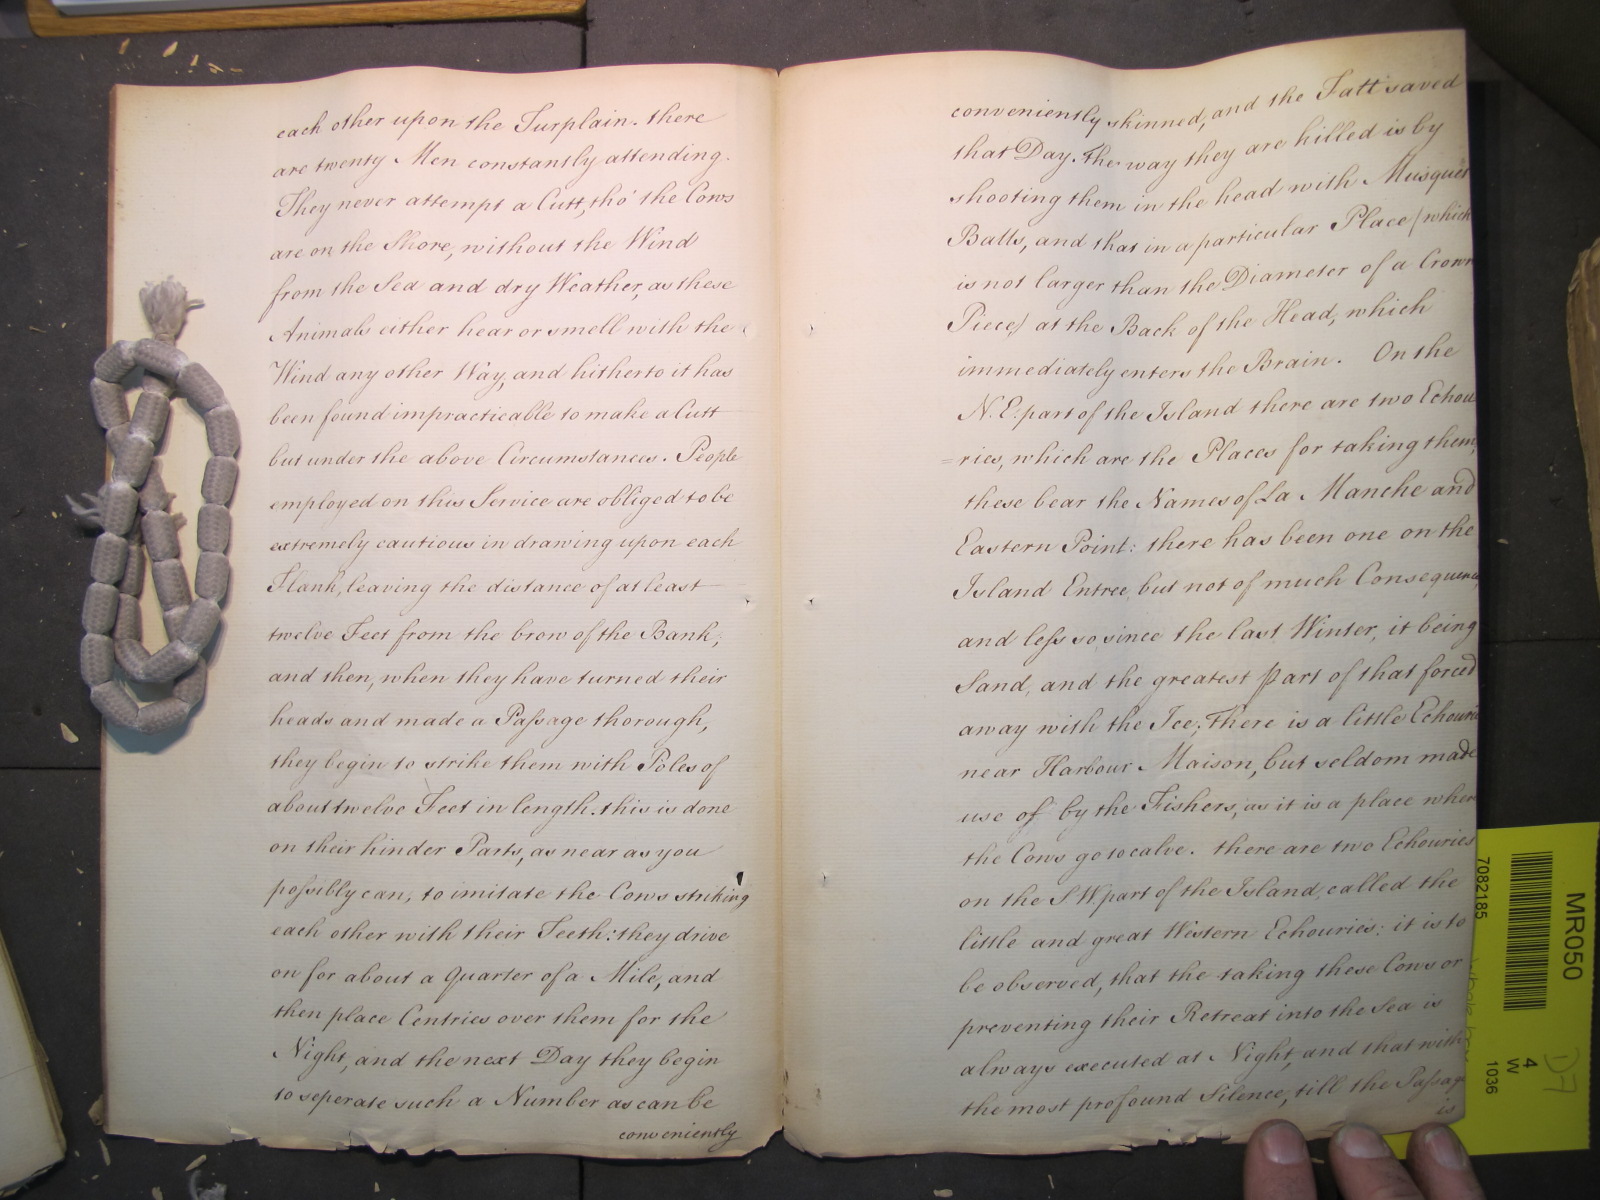 each other upon the Surplain. there
are twenty Men constantly attending.
They never attempt a Cutt, tho' the Cows
are on the Shore, without the Wind
from the Sea and dry Weather, as these
Animals either hear or smell with the
Wind any other Way, and hitherto it has
been found impracticable to make a Cutt
but under the above Circumstances. People
employed on this Service are obliged to be
extremely cautious in drawing upon each
Flank, leaving the distance of at least
twelve Feet from the brow of the Bank;
and then, when they have turned their
heads and made a Passage thorough,
they begin to strike them with Poles of
about twelve Feet in length. this is done
on their hinder Parts, as near as you
possibly can, to imitate the Cows striking
each other with their Teeth: they drive
on for about a Quarter of a Mile, and
then place Centries over them for the
Night, and the next Day they begin
to seperate such a Number as can be
conveniently
conveniently skinned, and the Fatt saved
that Day. The way they are killed is by
shooting them in the head with Musquet
Balls, and that in a particular Place (which
is not larger than the Diameter of a Crown
Piece) at the Back of the Head, which
immediately enters the Brain. On the
N.E. part of the Island there are two Echou
=ries, which are the Places for taking them,
these bear the Names of La Manche and
Eastern Point: there has been one on the
Island Entree, but not of much Consequence
and less so, since the last Winter, it being
Sand, and the greatest part of that forced
away with the Ice; There is a little Echourie
near Harbour Maison, but seldom made
use of by the Fishers, as it is a place where
the Cows go to calve. there are two Echouries
on the S W. part of the Island, called the
little and great Western Echouries: it is to
be observed, that the taking these Cows or
preventing their Retreat into the Sea is
always executed at Night, and that with
the most profound Silence, till the Passage
is
MR050
7082185
4
W
1036
D7